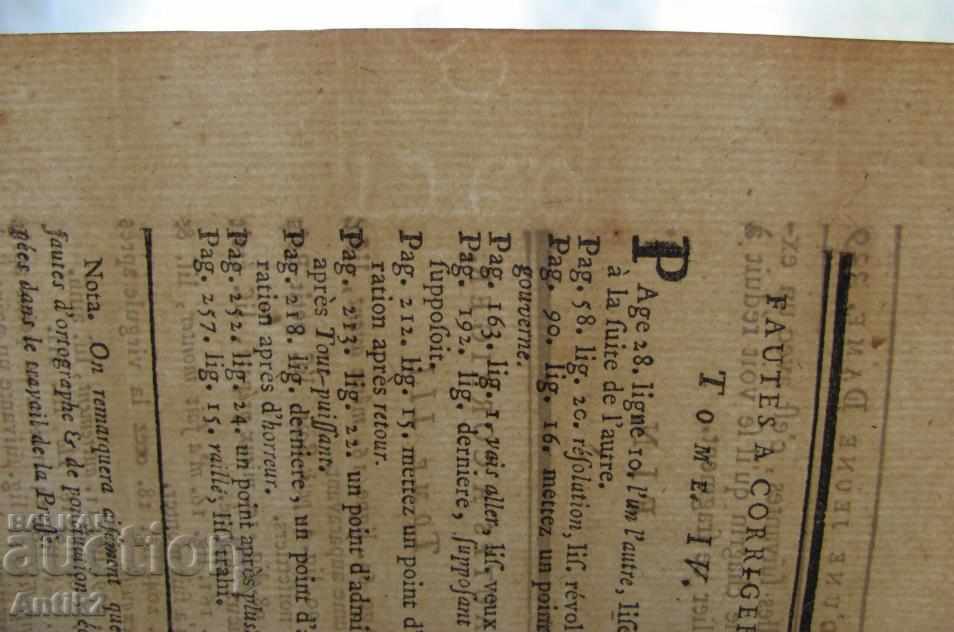 FAUTES A CORRIGER
TOME IV.
PAge 28. ligne 10. l'un l'autre, liſe
à la ſuite de l'aure.
Pag. 58. lig. 20. réſolution, liſ. révol
Pag. 90. lig. 16. mettez un point
gouverne.
Pag. 163. lig. 1. vais aller, liſ. veux
Pag. 192. lig. derniere, ſuppoſant
ſuppoſoit.
Pag. 212. lig. 15. mettez un point d
ration après retour.
Pag. 213. lig. 22. un point d'admi
après Tout-puiſſant.
Pag. 218. lig. derniere, un point d'a
ration après d'horreur.
Pag. 252. lig. 24. un point après plus
Pag. 257. lig. 15. raillé, liſ. train.
Nota. On remarquera aiſement que
fautes d'ortographe & de ponctuation
gées dans le travail de la Preſſe.
BALKAN
auction
Antik2